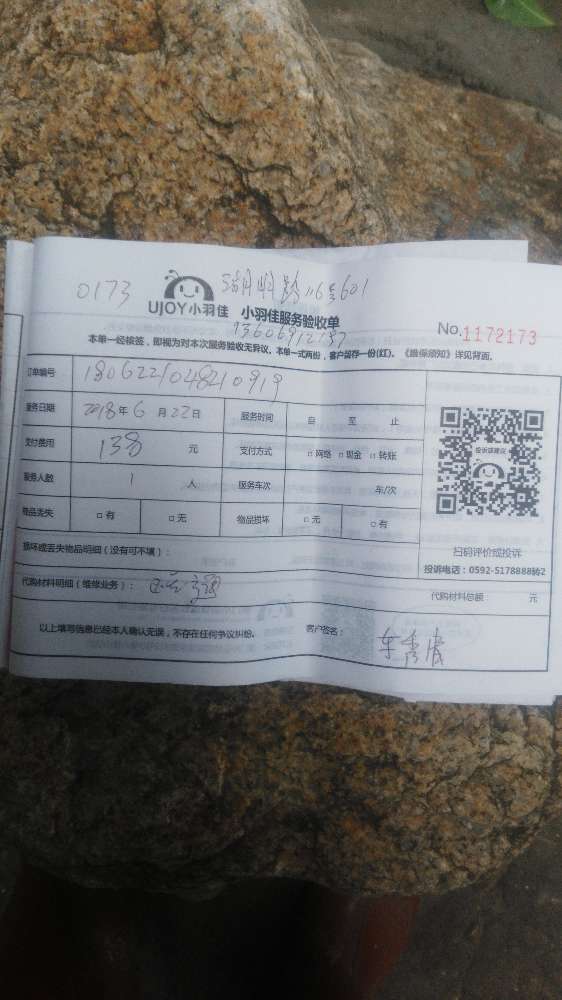 0173
湖明路116号601
UJOY小羽佳 小羽佳服务验收单
No.1172173
本单一经核签，即视为对本次服务验收无异议。本单一式两份，客户留存一份(红)。《维保须知》详见背面。
订单编号 1806221048210919
服务日期 2018年6月22日 服务时间 自 至 止
支付费用 138 元 支付方式 □网络 □现金 □转账
服务人数 1 人 服务车次 车/次
物品丢失 □有 □无 物品损坏 □无 □有
投诉或建议
扫码评价或投诉
投诉电话：0592-5178888转2
损坏或丢失物品明细（没有可不填）：
代购材料明细（维修业务）： 代购材料总额 元
以上填写信息已经本人确认无误，不存在任何争议纠纷。 客户签名：